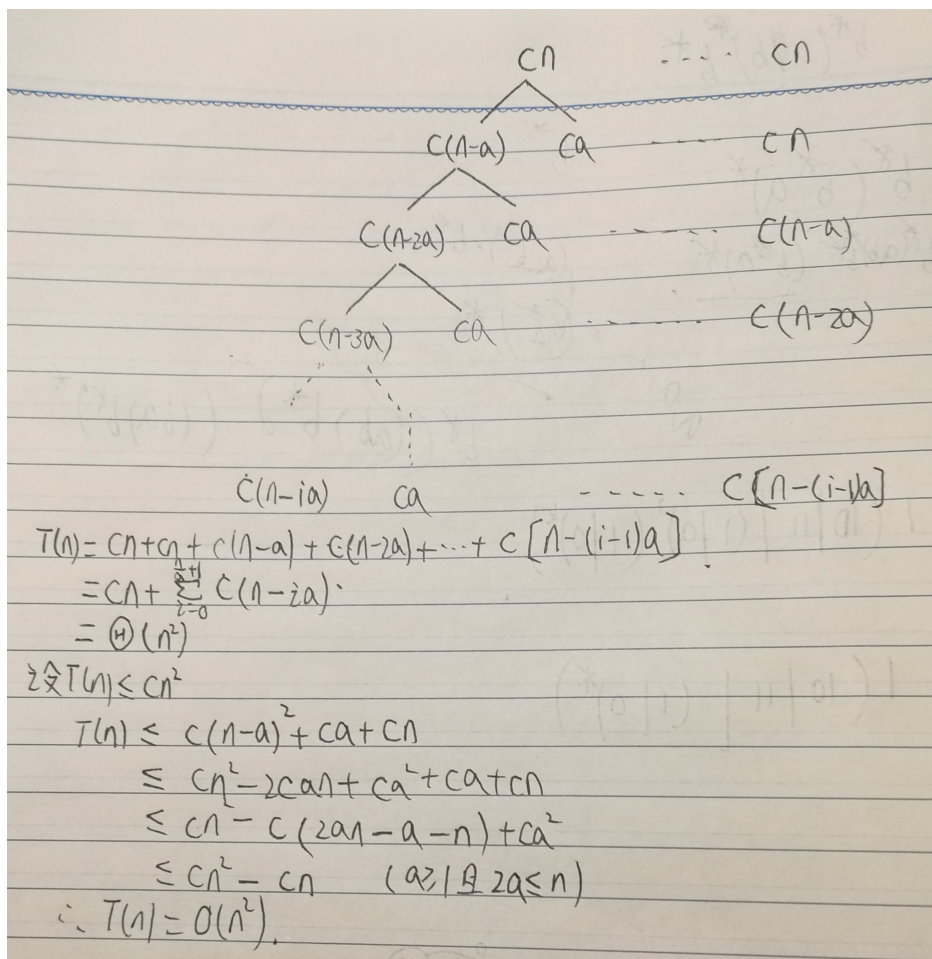 cn ····· cn
c(n-a) ca ····· cn
c(n-2a) ca ····· c(n-a)
c(n-3a) ca ····· c(n-2a)
c(n-ia) ca ····· c[n-(i-1)a]
T(n)=cn+cn+c(n-a)+c(n-2a)+···+c[n-(i-1)a].
=cn+∑_{i=0}^{n/a+1} c(n-ia).
=Θ(n²)
设T(n)≤cn²
T(n)≤ c(n-a)²+ca+cn
≤ cn²-2can+ca²+ca+cn
≤ cn²-c(2an-a-n)+ca²
≤cn²-cn (a≥1且2a≤n)
∴T(n)=O(n²).